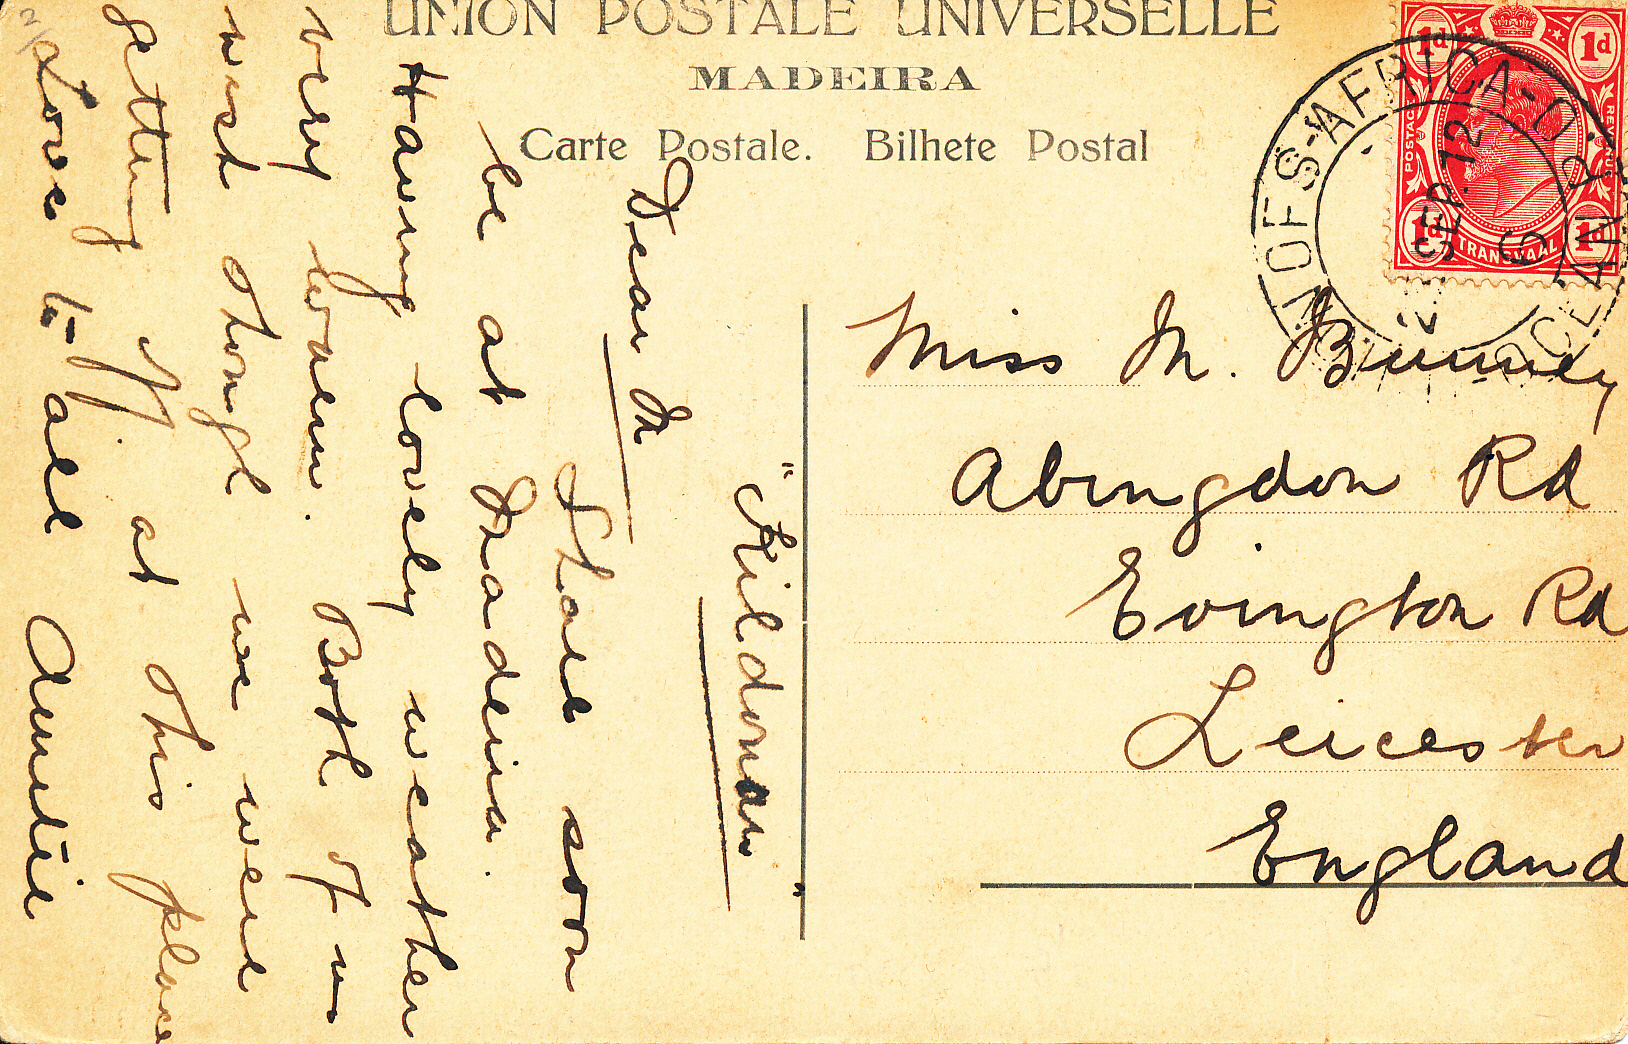 UNION POSTALE UNIVERSELLE
MADEIRA
Carte Postale. Bilhete Postal
1d 1d
POSTAGE REVENUE
1d 1d
TRANSVAAL
UNION OF S-AFRICA-
OCEAN
SEP. 12
Miss M. Bunney
Abingdon Rd
Evington Rd
Leicester
England
"Kildonan"
Dear M
Shall soon
be at Madeira.
Having lovely weather
very warm. Both of us
wish though we were
getting off at this place
Love to all Auntie
2/